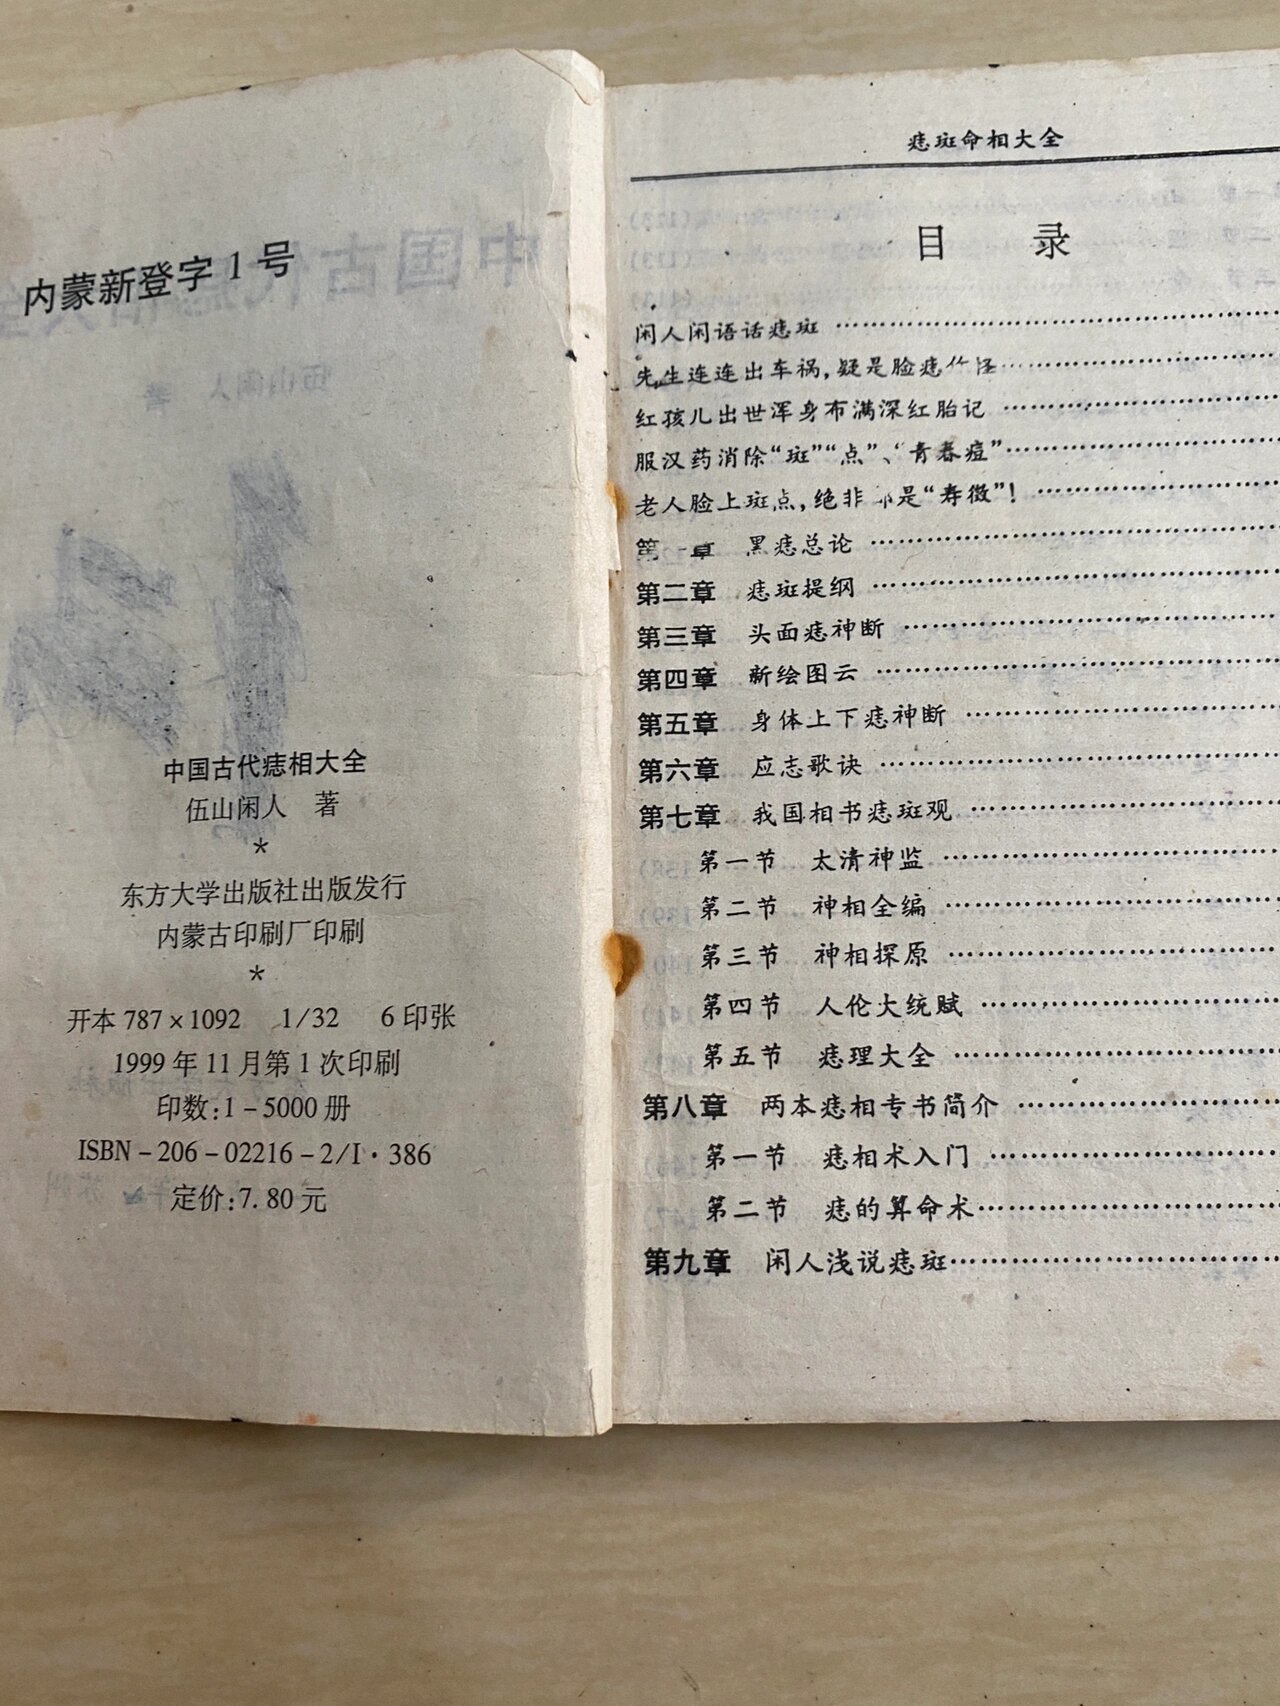 内蒙新登字1号
中国古代痣相大全
伍山闲人 著
*
东方大学出版社出版发行
内蒙古印刷厂印刷
*
开本787×1092 1/32 6印张
1999年11月第1次印刷
印数:1-5000册
ISBN-206-02216-2/I·386
定价:7.80元
痣斑命相大全
目 录
闲人闲语话痣斑 ………………
先生连连出车祸,疑是脸痣作怪 ………………
红孩儿出世浑身布满深红胎记 ………………
服汉药消除“斑”“点”、“青春痘” ………………
老人脸上斑点,绝非 是“寿徵”! ………………
第一章 黑痣总论 ………………
第二章 痣斑提纲 ………………
第三章 头面痣神断 ………………
第四章 新绘图云 ………………
第五章 身体上下痣神断 ………………
第六章 应志歌诀 ………………
第七章 我国相书痣斑观 ………………
第一节 太清神监 ………………
第二节 神相全编 ………………
第三节 神相探原 ………………
第四节 人伦大统赋 ………………
第五节 痣理大全 ………………
第八章 两本痣相专书简介 ………………
第一节 痣相术入门 ………………
第二节 痣的算命术 ………………
第九章 闲人浅说痣斑 ………………